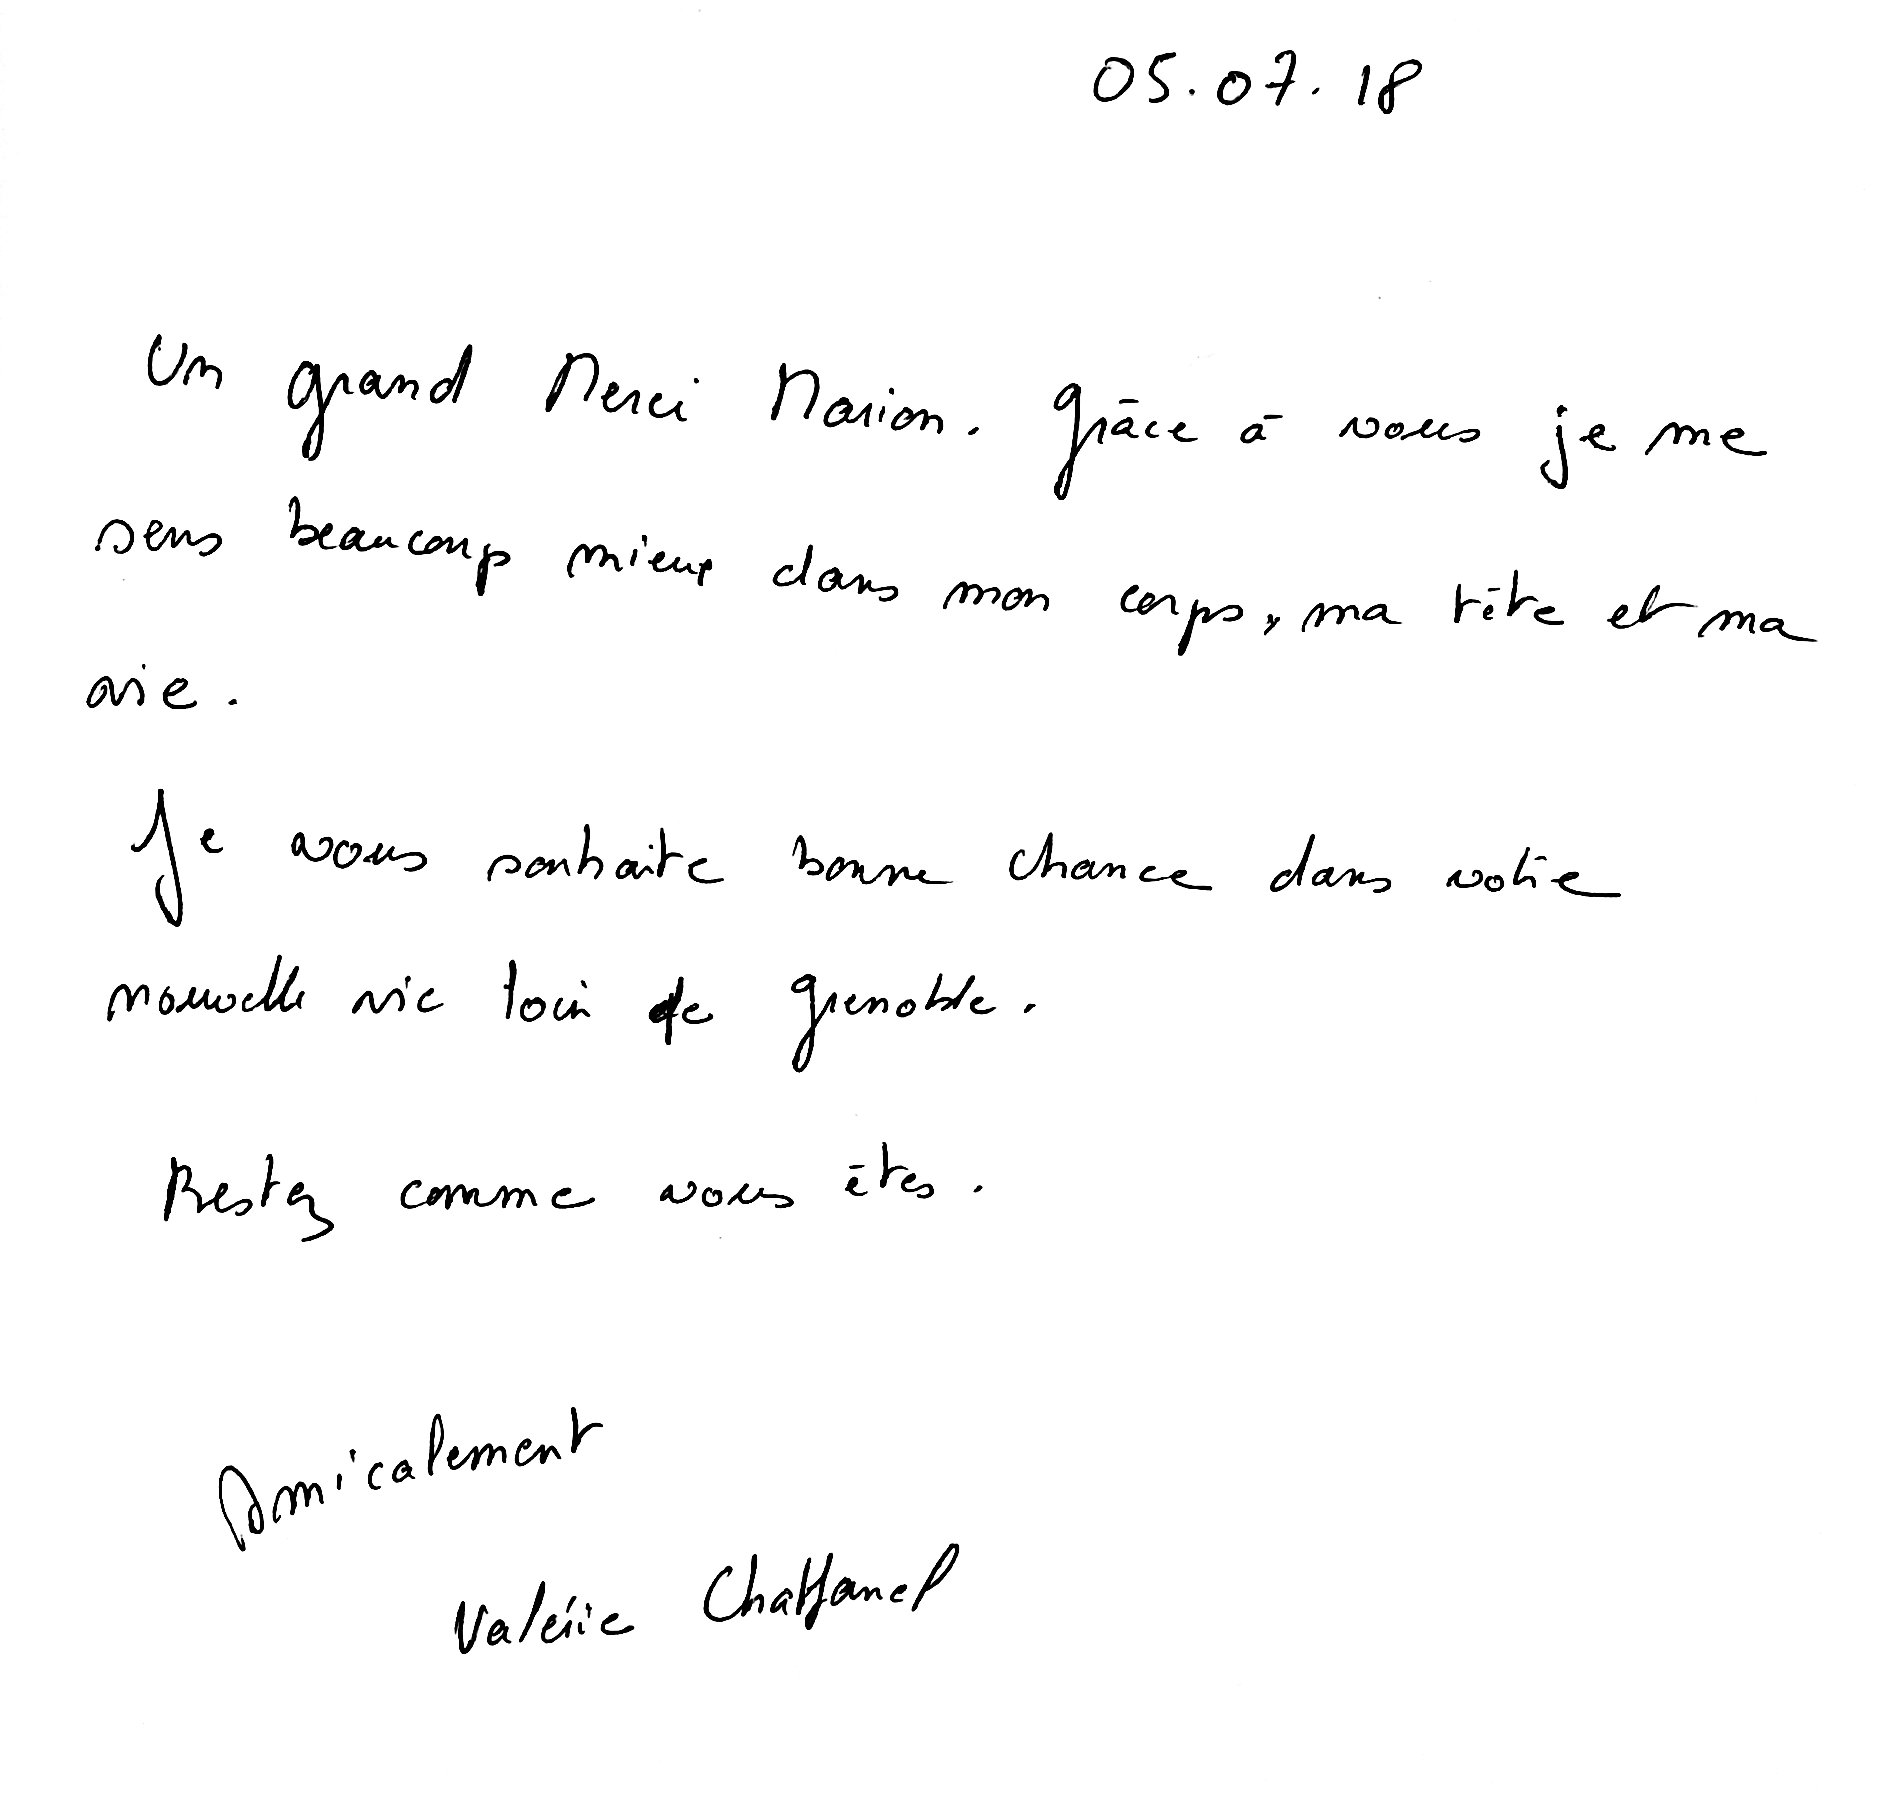 05.07.18
Un grand Merci Marion. Grâce à vous je me
sens beaucoup mieux dans mon corps, ma tête et ma
vie.
Je vous souhaite bonne chance dans votre
nouvelle vie loin de Grenoble.
Restez comme vous êtes.
Amicalement
Valérie Chaffanel